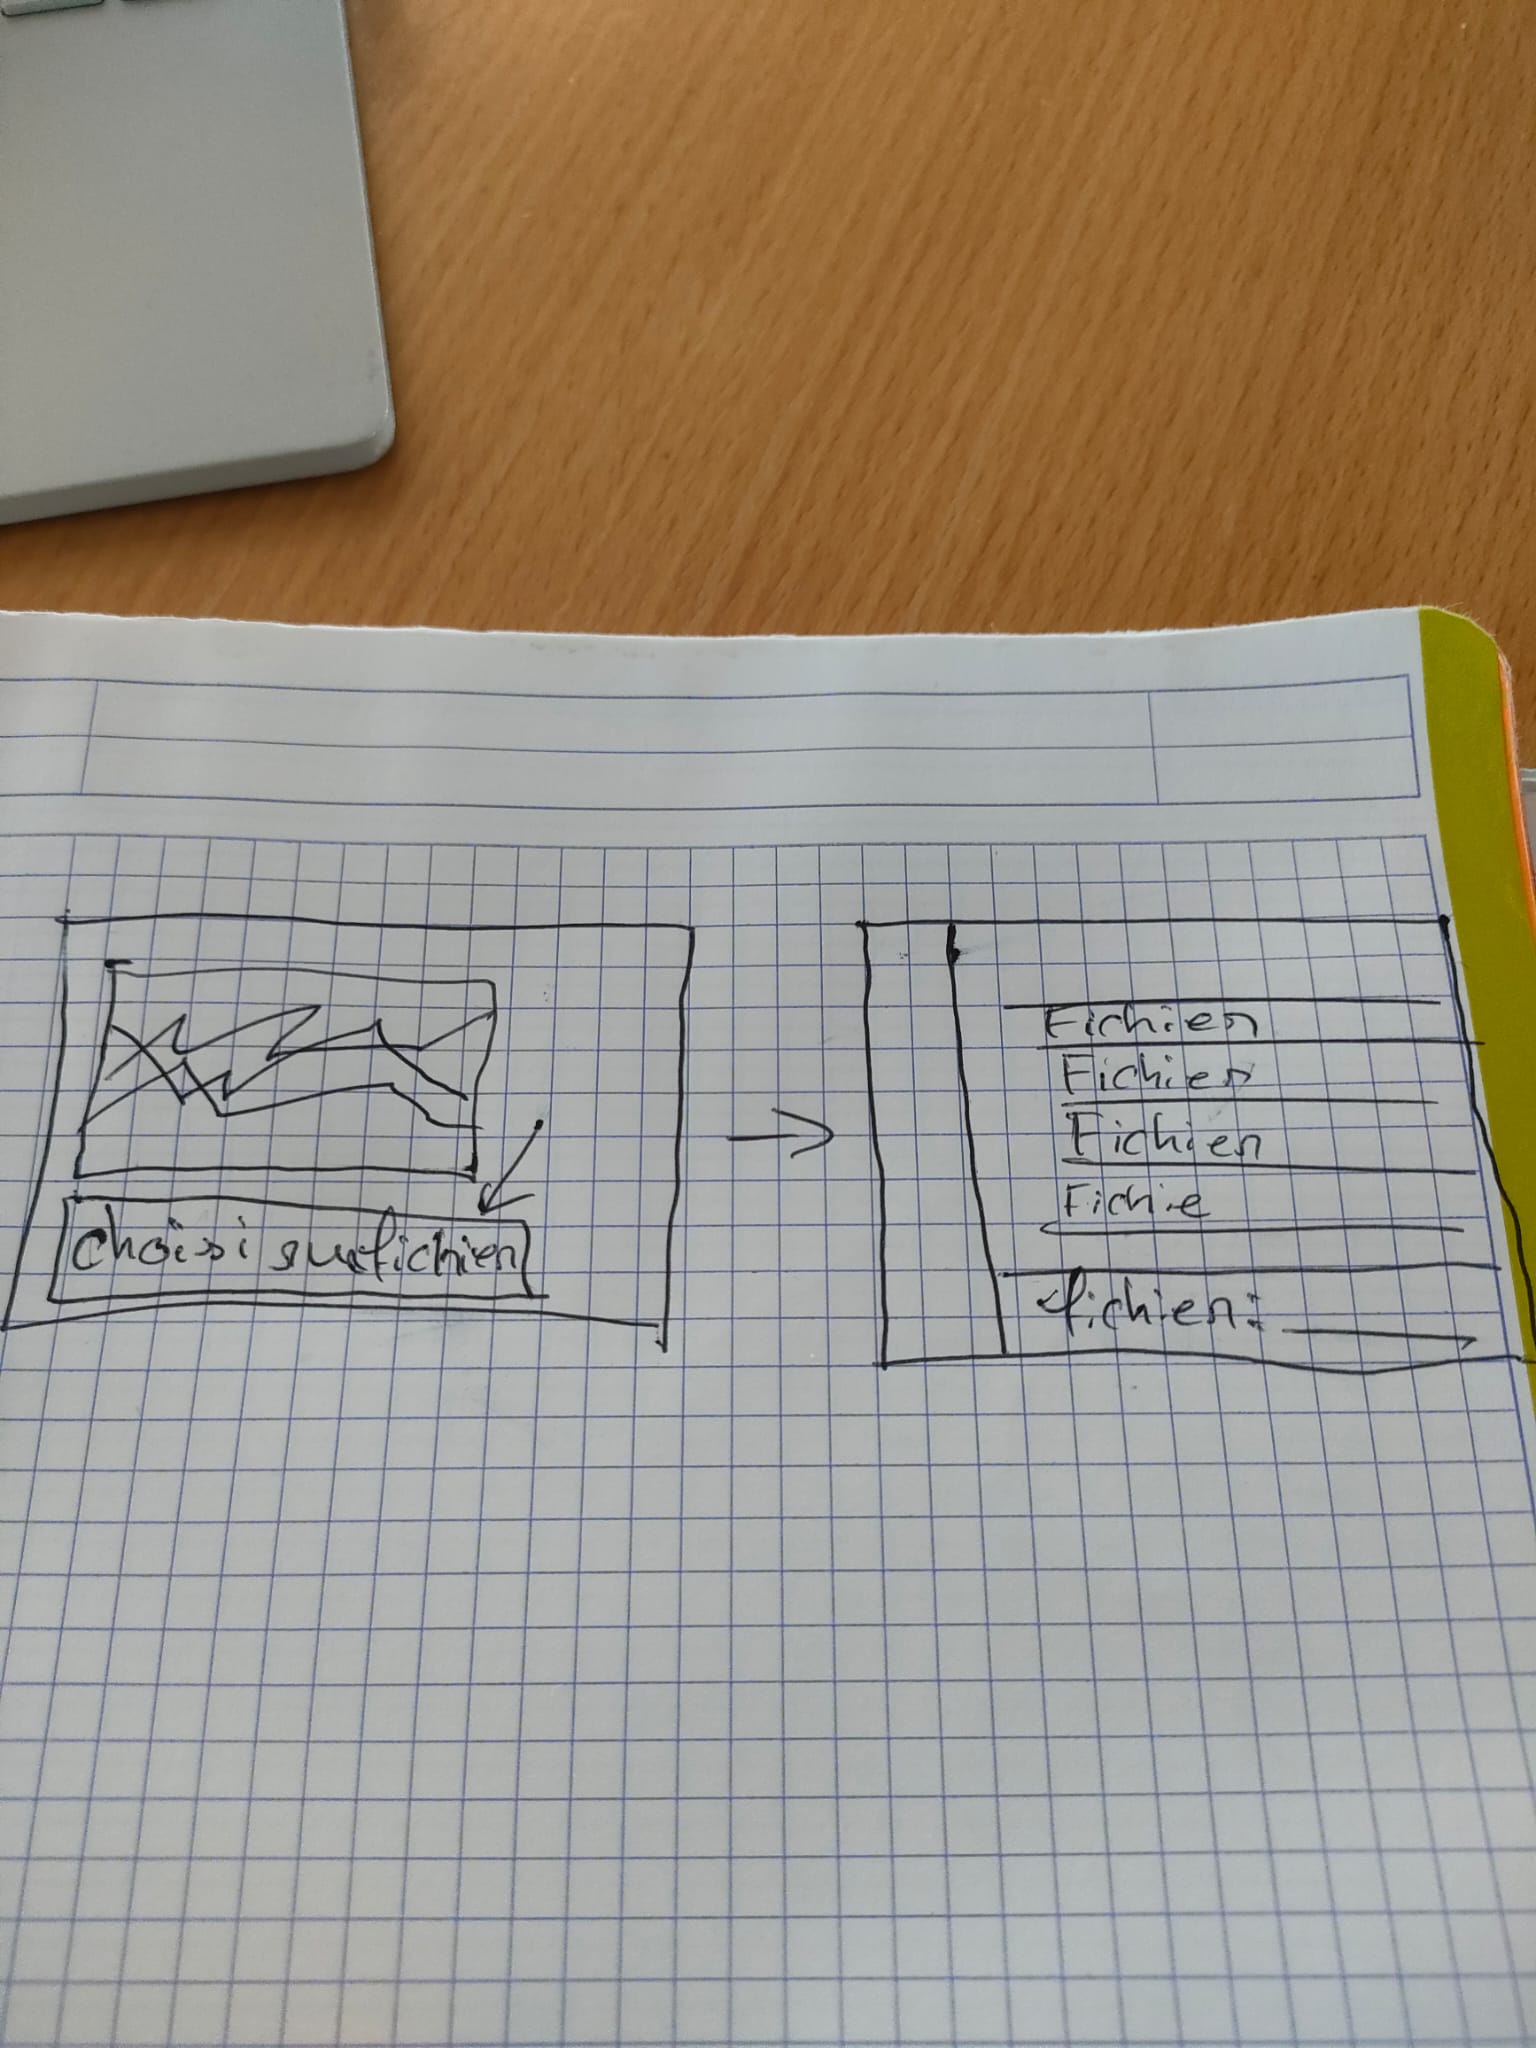 choisi sur fichier
Fichier
Fichier
Fichier
Fichie
fichier: